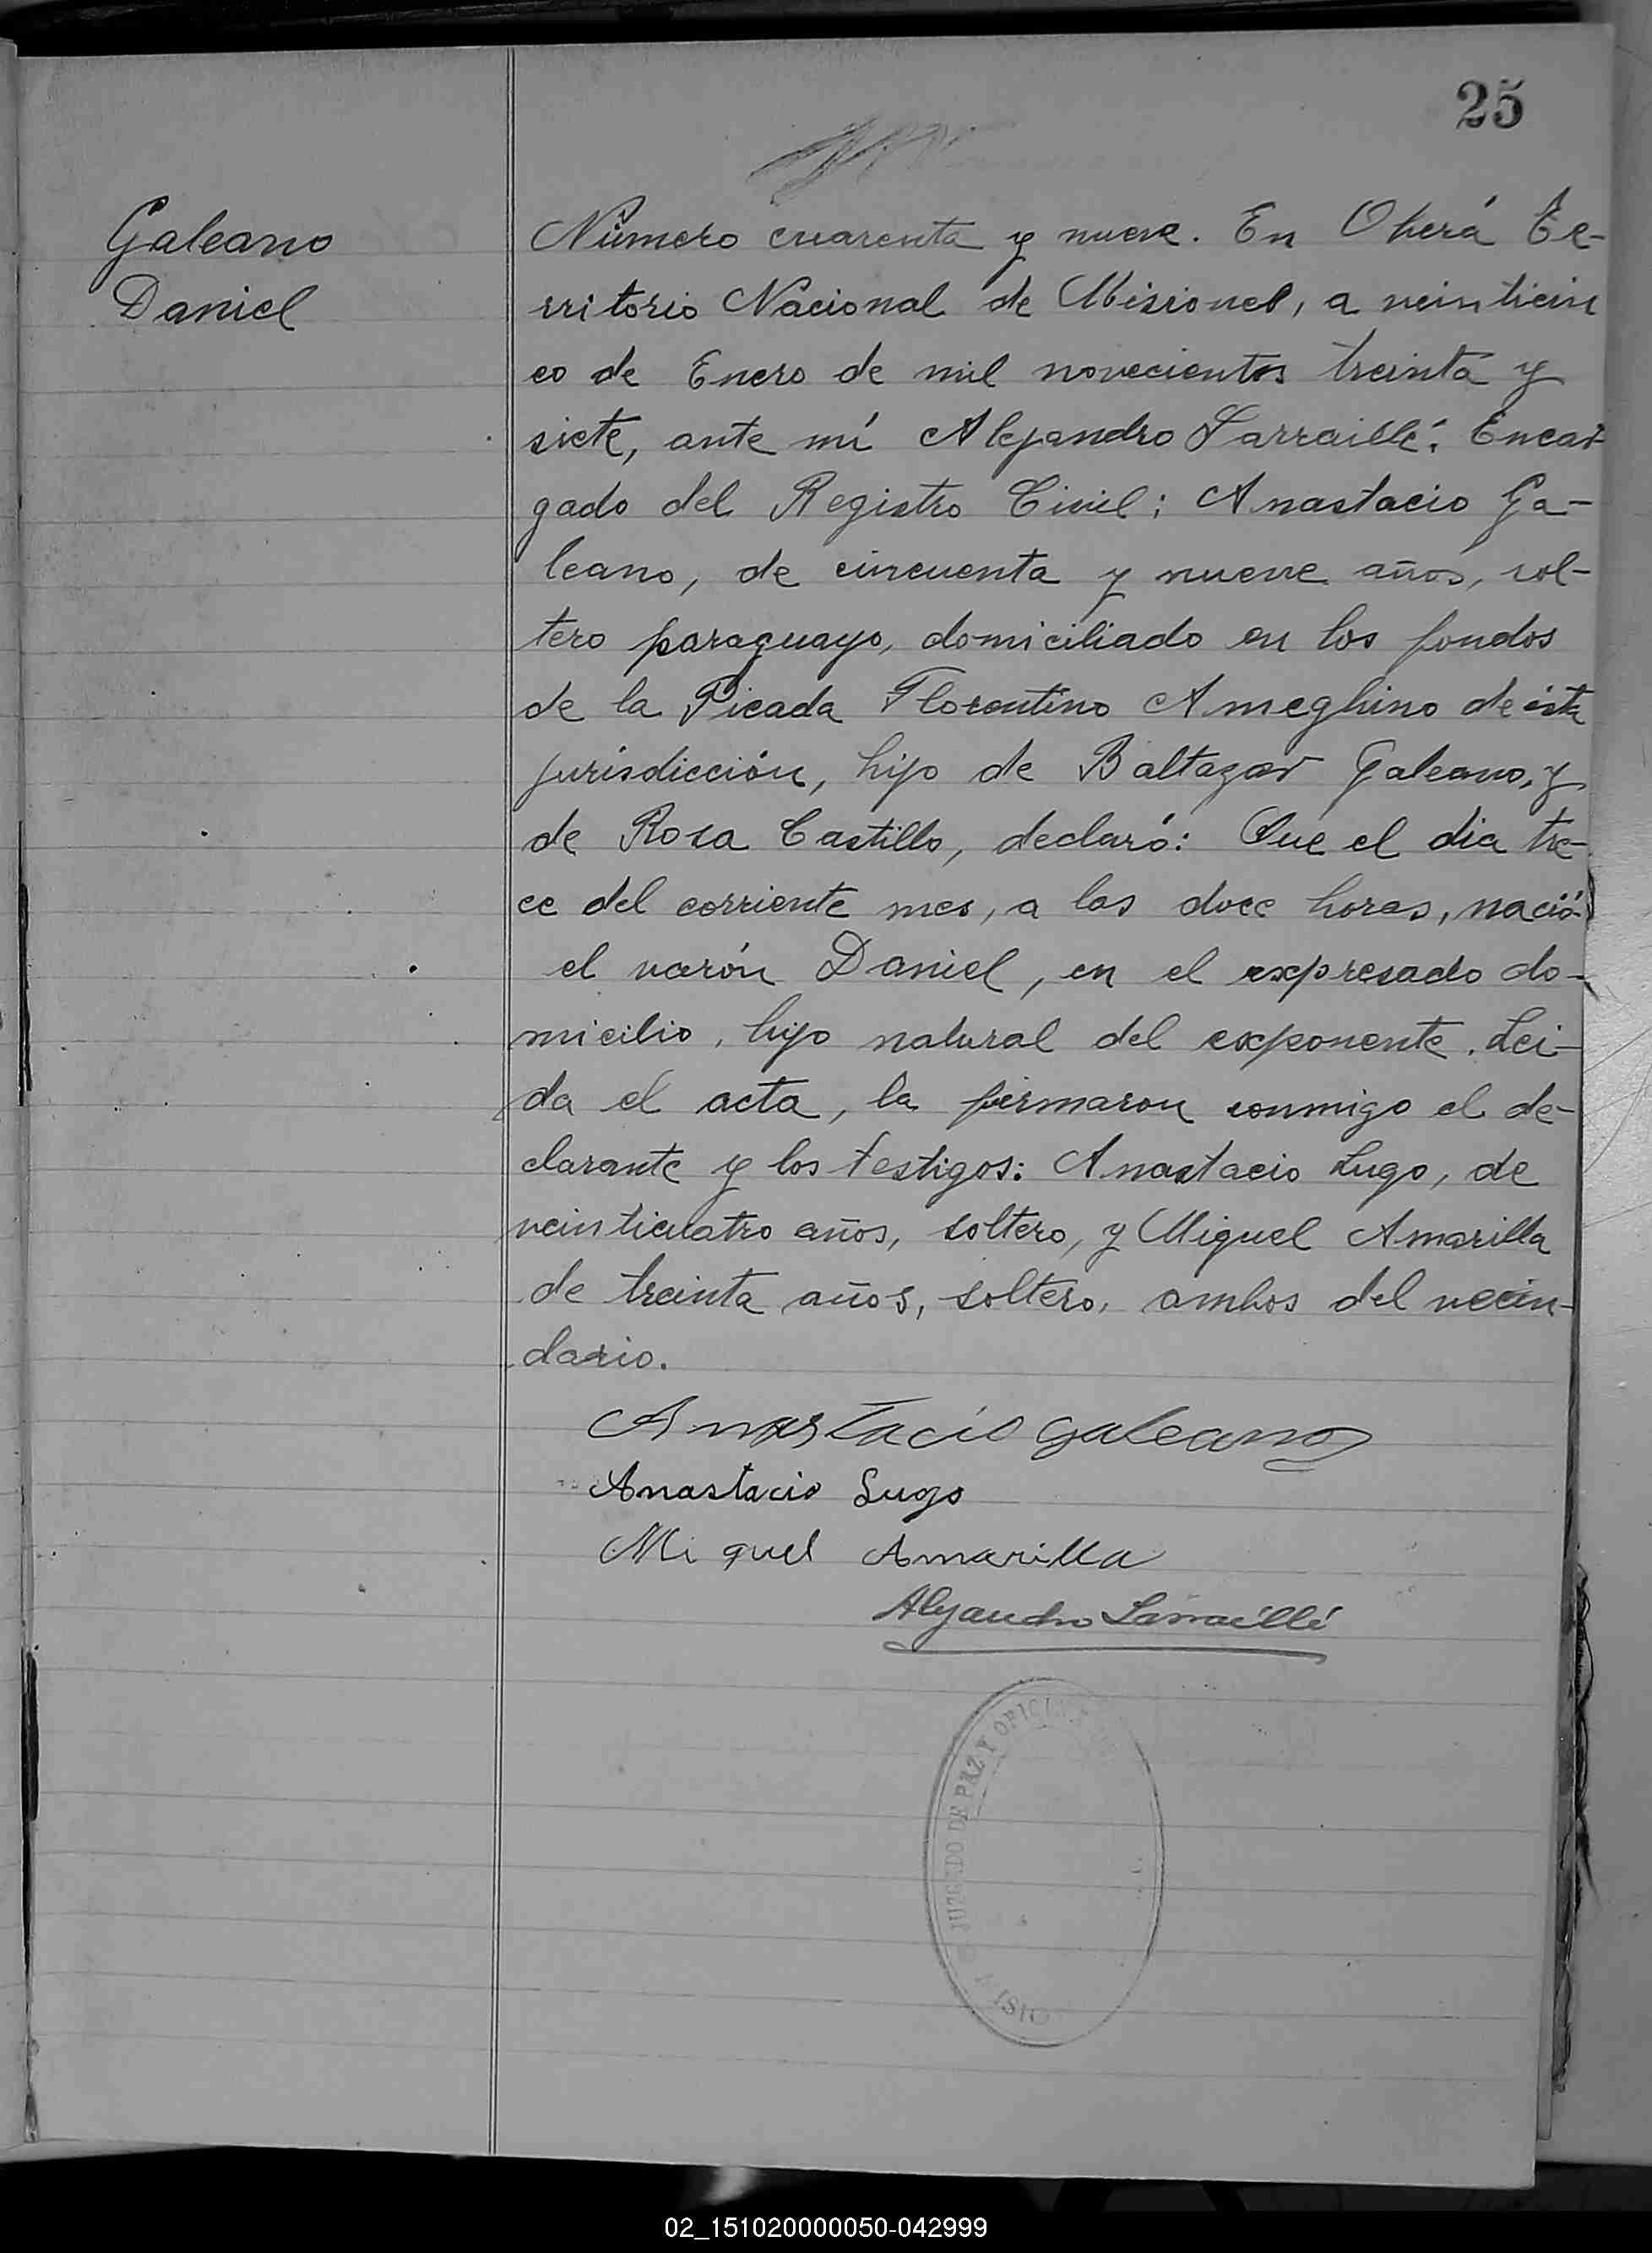 25
Galeano
Daniel
Número cuarenta y nueve. En Oberá Te-
rritorio Nacional de Misiones, a veinticin
co de Enero de mil novecientos treinta y
siete, ante mí Alejandro Larraillé, Encar-
gado del Registro Civil; Anastacio Ga-
leano, de cincuenta y nueve años, sol-
tero paraguayo, domiciliado en los fondos
de la Picada Florentino Ameghino de ésta
jurisdicción, hijo de Baltazar Galeano, y
de Rosa Castillo, declaró: Que el dia tre-
ce del corriente mes, a las doce horas, nació
el varón Daniel, en el expresado do-
micilio, hijo natural del exponente. Lei-
da el acta, la firmaron conmigo el de-
clarante y los testigos: Anastacio Lugo, de
veinticuatro años, soltero, y Miguel Amarilla
de treinta años, soltero, ambos del vecin-
dario.
Anastacio Galeano
Anastacio Lugo
Miguel Amarilla
Alejandro Larraillé
JUZGADO DE PAZ Y
02_151020000050-042999